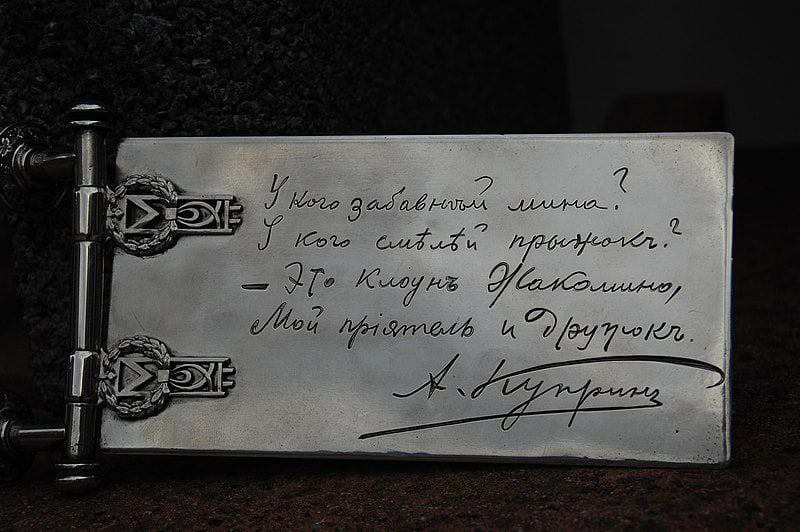 У кого забавнѣй мина?
У кого смѣлѣй прыжокъ?
– Это клоунъ Жакомино,
Мой пріятель и дружокъ.
А. Купринъ